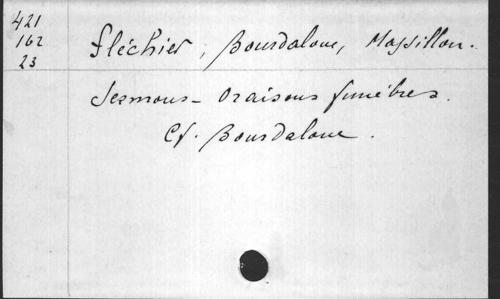 421
162
23
Fléchier, Bourdaloue, Massillon.
Sermons - Oraisons funèbres.
Cf. Bourdaloue.